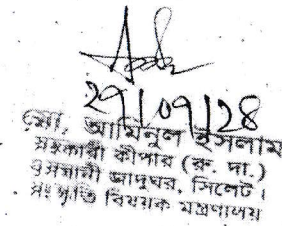 ২৭/০৭/২৪
মো, আমিনুল ইসলাম
সহকারী কীপার (রু. দা.)
ওসমানী জাদুঘর, সিলেট।
সংস্কৃতি বিষয়ক মন্ত্রণালয়